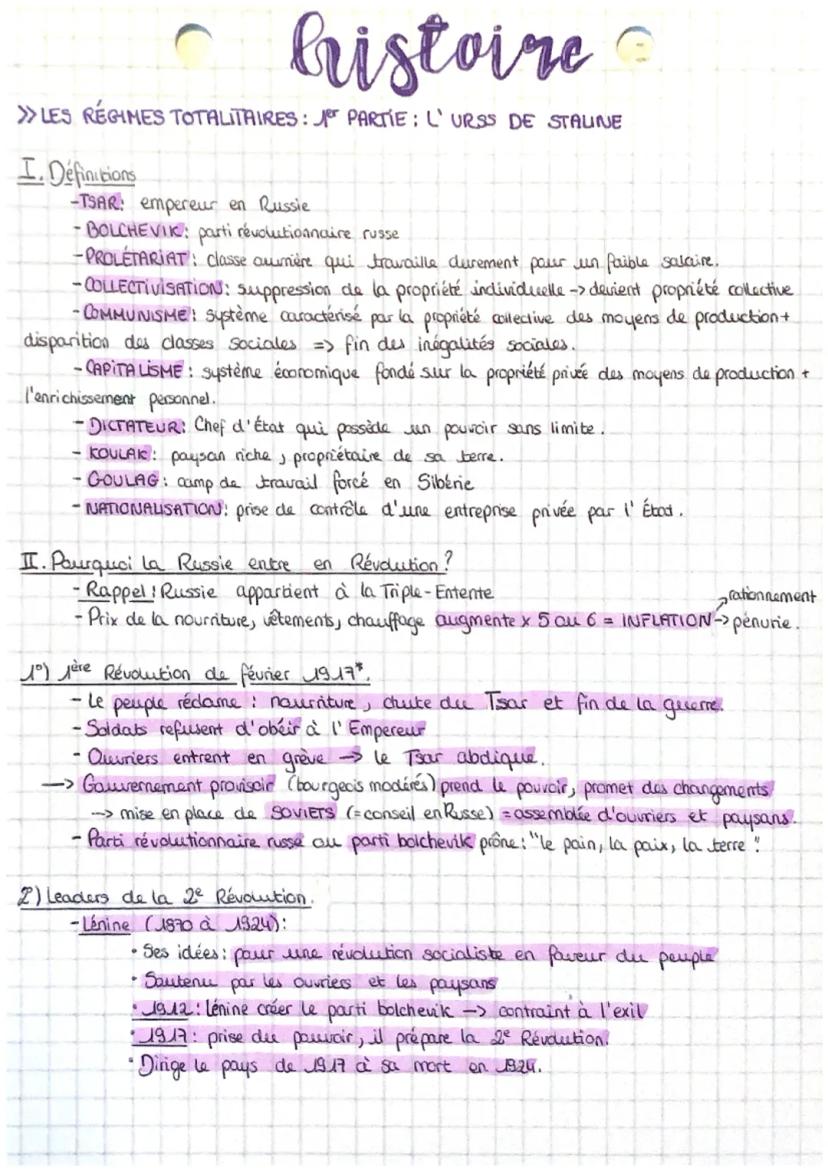 histoire
>> LES RÉGIMES TOTALITAIRES : 1er PARTIE : L' URSS DE STALINE
I. Définitions
-TSAR: empereur en Russie
- BOLCHEVIK: parti révolutionnaire russe
- PROLÉTARIAT : classe ouvrière qui travaille durement pour un faible salaire.
- COLLECTIVISATION: suppression de la propriété individuelle -> devient propriété collective
- COMMUNISME: système caractérisé par la propriété collective des moyens de production +
disparition des classes sociales => fin des inégalités sociales.
- CAPITALISME : système économique fondé sur la propriété privée des moyens de production +
l'enrichissement personnel.
- DICTATEUR: Chef d'État qui possède un pouvoir sans limite.
- KOULAK : paysan riche, propriétaire de sa terre.
- GOULAG : camp de travail forcé en Sibérie
- NATIONALISATION: prise de contrôle d'une entreprise privée par l'État.
II. Pourquoi la Russie entre en Révolution ?
- Rappel : Russie appartient à la Triple-Entente
rationnement
- Prix de la nourriture, vêtements, chauffage augmente x 5 ou 6 = INFLATION -> pénurie.
1°) 1ère Révolution de février 1917*.
- Le peuple réclame : nourriture, chute du Tsar et fin de la guerre.
- Soldats refusent d'obéir à l'Empereur
- Ouvriers entrent en grève -> le Tsar abdique.
-> Gouvernement provisoir (bourgeois modérés) prend le pouvoir, promet des changements
-> mise en place de SOVIERS (= conseil en Russe) = assemblée d'ouvriers et paysans.
- Parti révolutionnaire russe ou parti bolchevik prône : "le pain, la paix, la terre".
2) Leaders de la 2e Révolution.
- Lénine (1870 à 1924):
• Ses idées : pour une révolution socialiste en faveur du peuple
• Soutenu par les ouvriers et les paysans
• 1912 : Lénine créer le parti bolchevik -> contraint à l'exil
• 1917 : prise du pouvoir, il prépare la 2e Révolution.
• Dirige le pays de 1917 à sa mort en 1924.